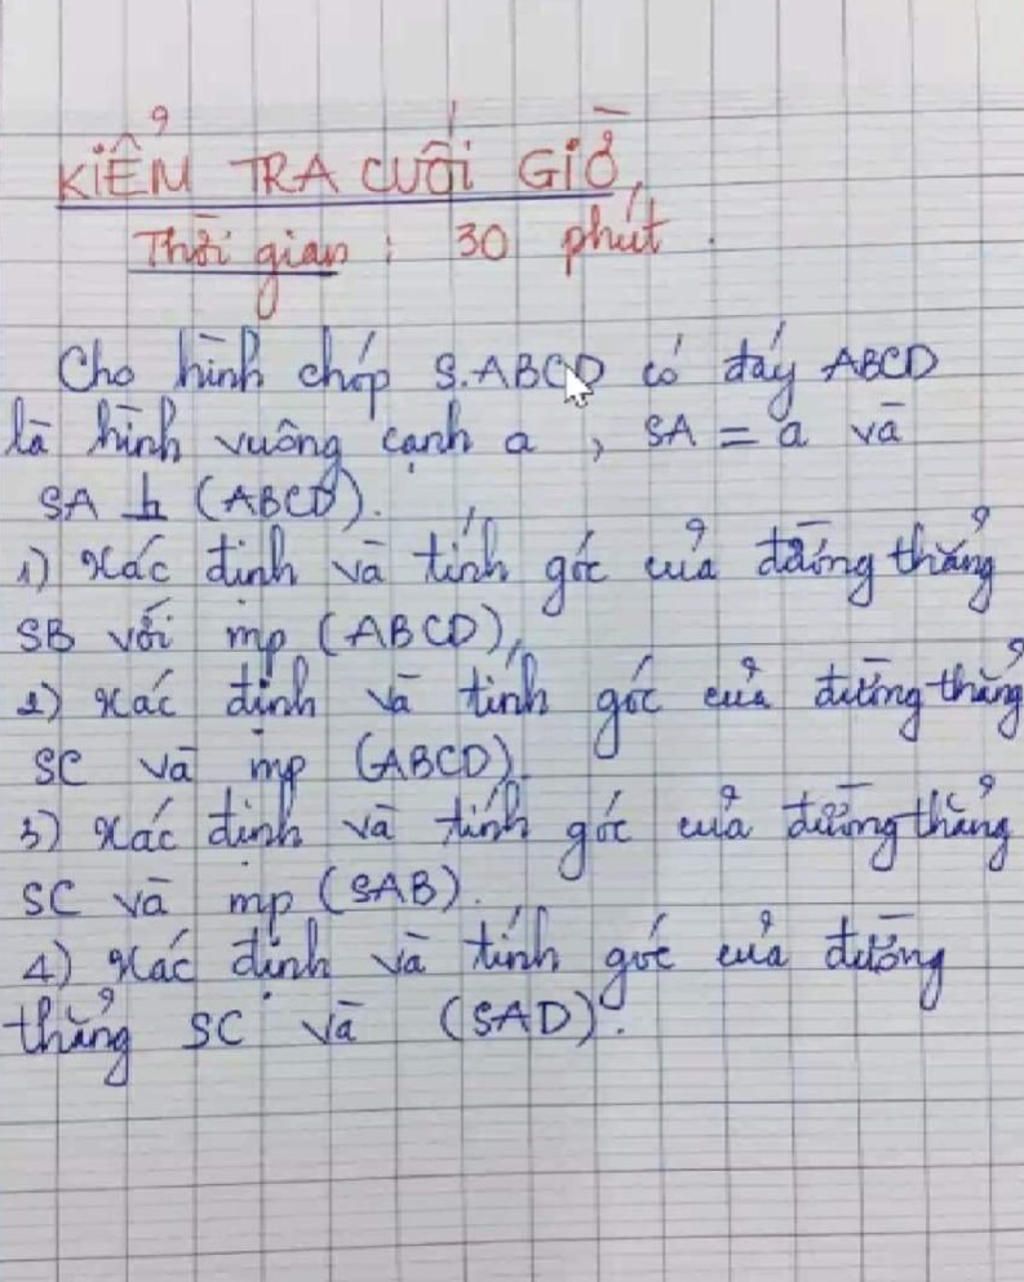 KIỂM TRA CUỐI GIỜ
Thời gian : 30 phút.
Cho hình chóp S.ABCD có đáy ABCD
là hình vuông cạnh a, SA = a và
SA ⊥ (ABCD).
1) Xác định và tính góc của đường thẳng
SB với mp (ABCD),
2) Xác định và tính góc của đường thẳng
SC và mp (ABCD)
3) Xác định và tính góc của đường thẳng
SC và mp (SAB).
4) Xác định và tính góc của đường
thẳng SC và (SAD).